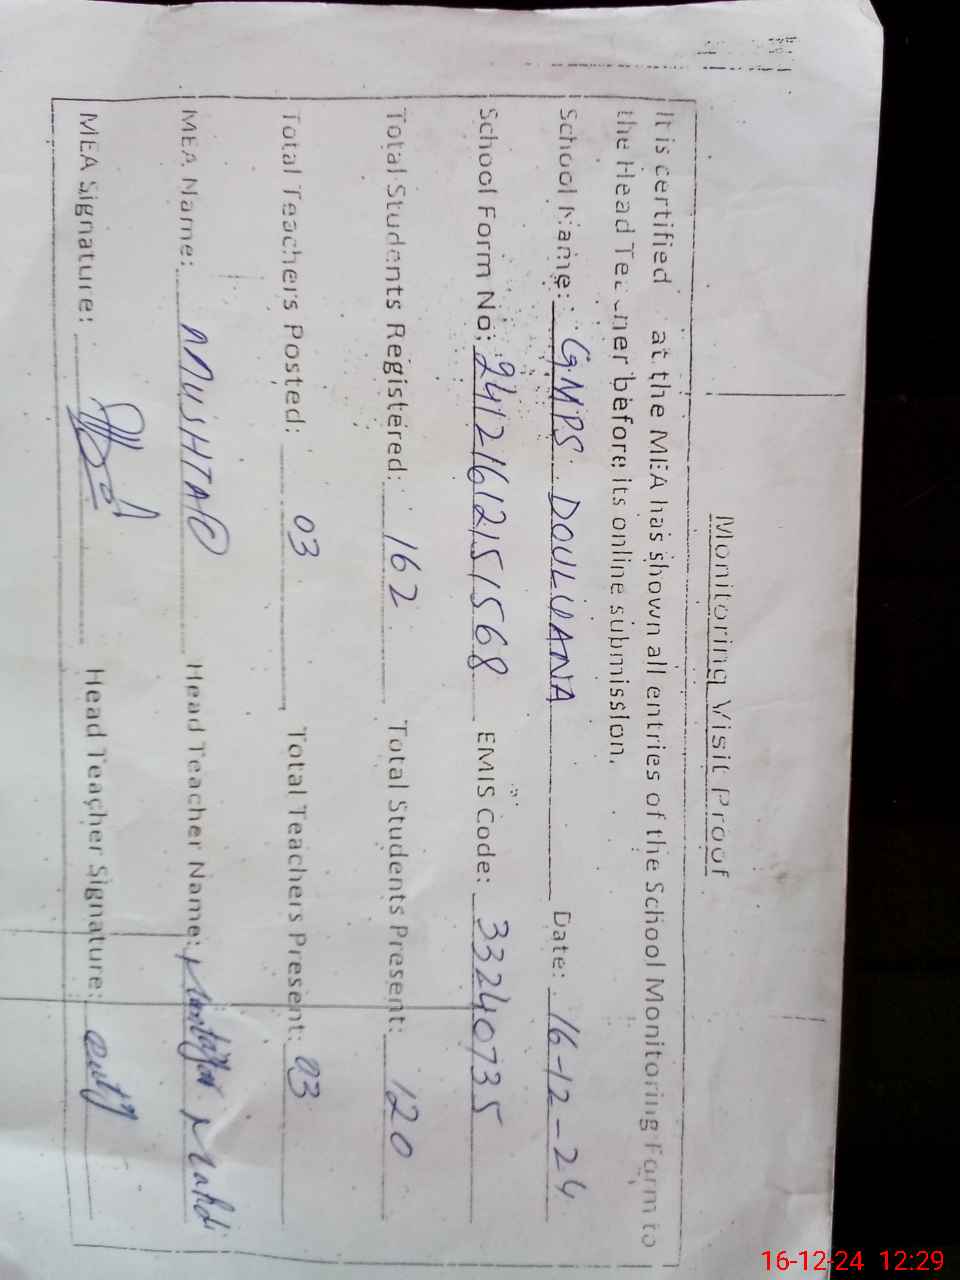 Monitoring Visit Proof
It is certified at the MEA has shown all entries of the School Monitoring Form to
the Head Teacher before its online submission.
School Name: GMPS DOULUANA Date: 16-12-24
School Form No: 241216121515 68 EMIS Code: 33240735
Total Students Registered: 162 Total Students Present: 120
Total Teachers Posted: 03 Total Teachers Present: 03
MEA Name: MUSHTAQ Head Teacher Name: Mahdi
MEA Signature: Head Teacher Signature:
16-12-24 12:29